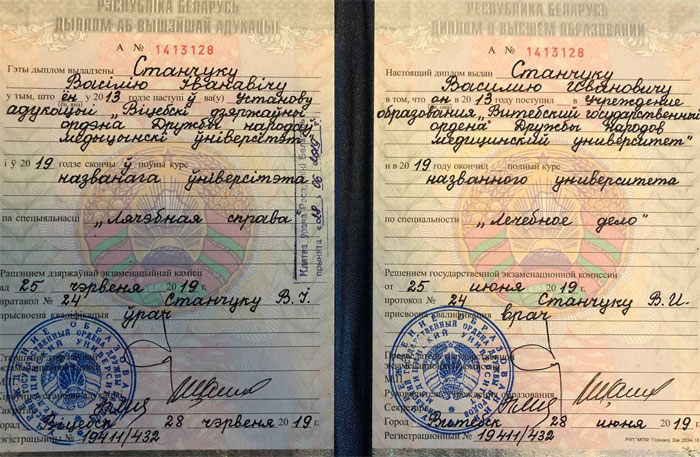 РЭСПУБЛІКА БЕЛАРУСЬ
ДЫПЛОМ АБ ВЫШЭЙШАЙ АДУКАЦЫІ
А № 1413128
Гэты дыплом выдадзены Станчуку
Васілію Іванавічу
у тым, што ён у 2013 годзе паступіў ва(у) установу
адукацыі „Віцебскі дзяржаўны
ордэна Дружбы народаў
медыцынскі ўніверсітэт"
і ў 2019 годзе скончыў поўны курс
названага ўніверсітэта
па спецыяльнасці „Лячэбная справа"
Рашэннем дзяржаўнай экзаменацыйнай камісіі
ад 25 чэрвеня 2019 г.
пратакол № 24 Станчуку В.І.
прысвоена кваліфікацыя ўрач
Сакратар
Віцебск 28 чэрвеня 2019 г.
№ 19411/432
Клятва ўрача Рэспублікі Беларусь
прынята «28» 06 2019 г.
РЕСПУБЛИКА БЕЛАРУСЬ
ДИПЛОМ О ВЫСШЕМ ОБРАЗОВАНИИ
А № 1413128
Настоящий диплом выдан Станчуку
Василию Ивановичу
в том, что он в 2013 году поступил в учреждение
образования „Витебский государственный
ордена Дружбы народов
медицинский университет"
и в 2019 году окончил полный курс
названного университета
по специальности „Лечебное дело"
Решением государственной экзаменационной комиссии
от 25 июня 2019 г.
протокол № 24 Станчуку В.И.
присвоена квалификация врач
Председатель государственной
экзаменационной комиссии
М.П.
Руководитель учреждения образования
Секретарь
Город Витебск 28 июня 2019 г.
Регистрационный № 19411/432